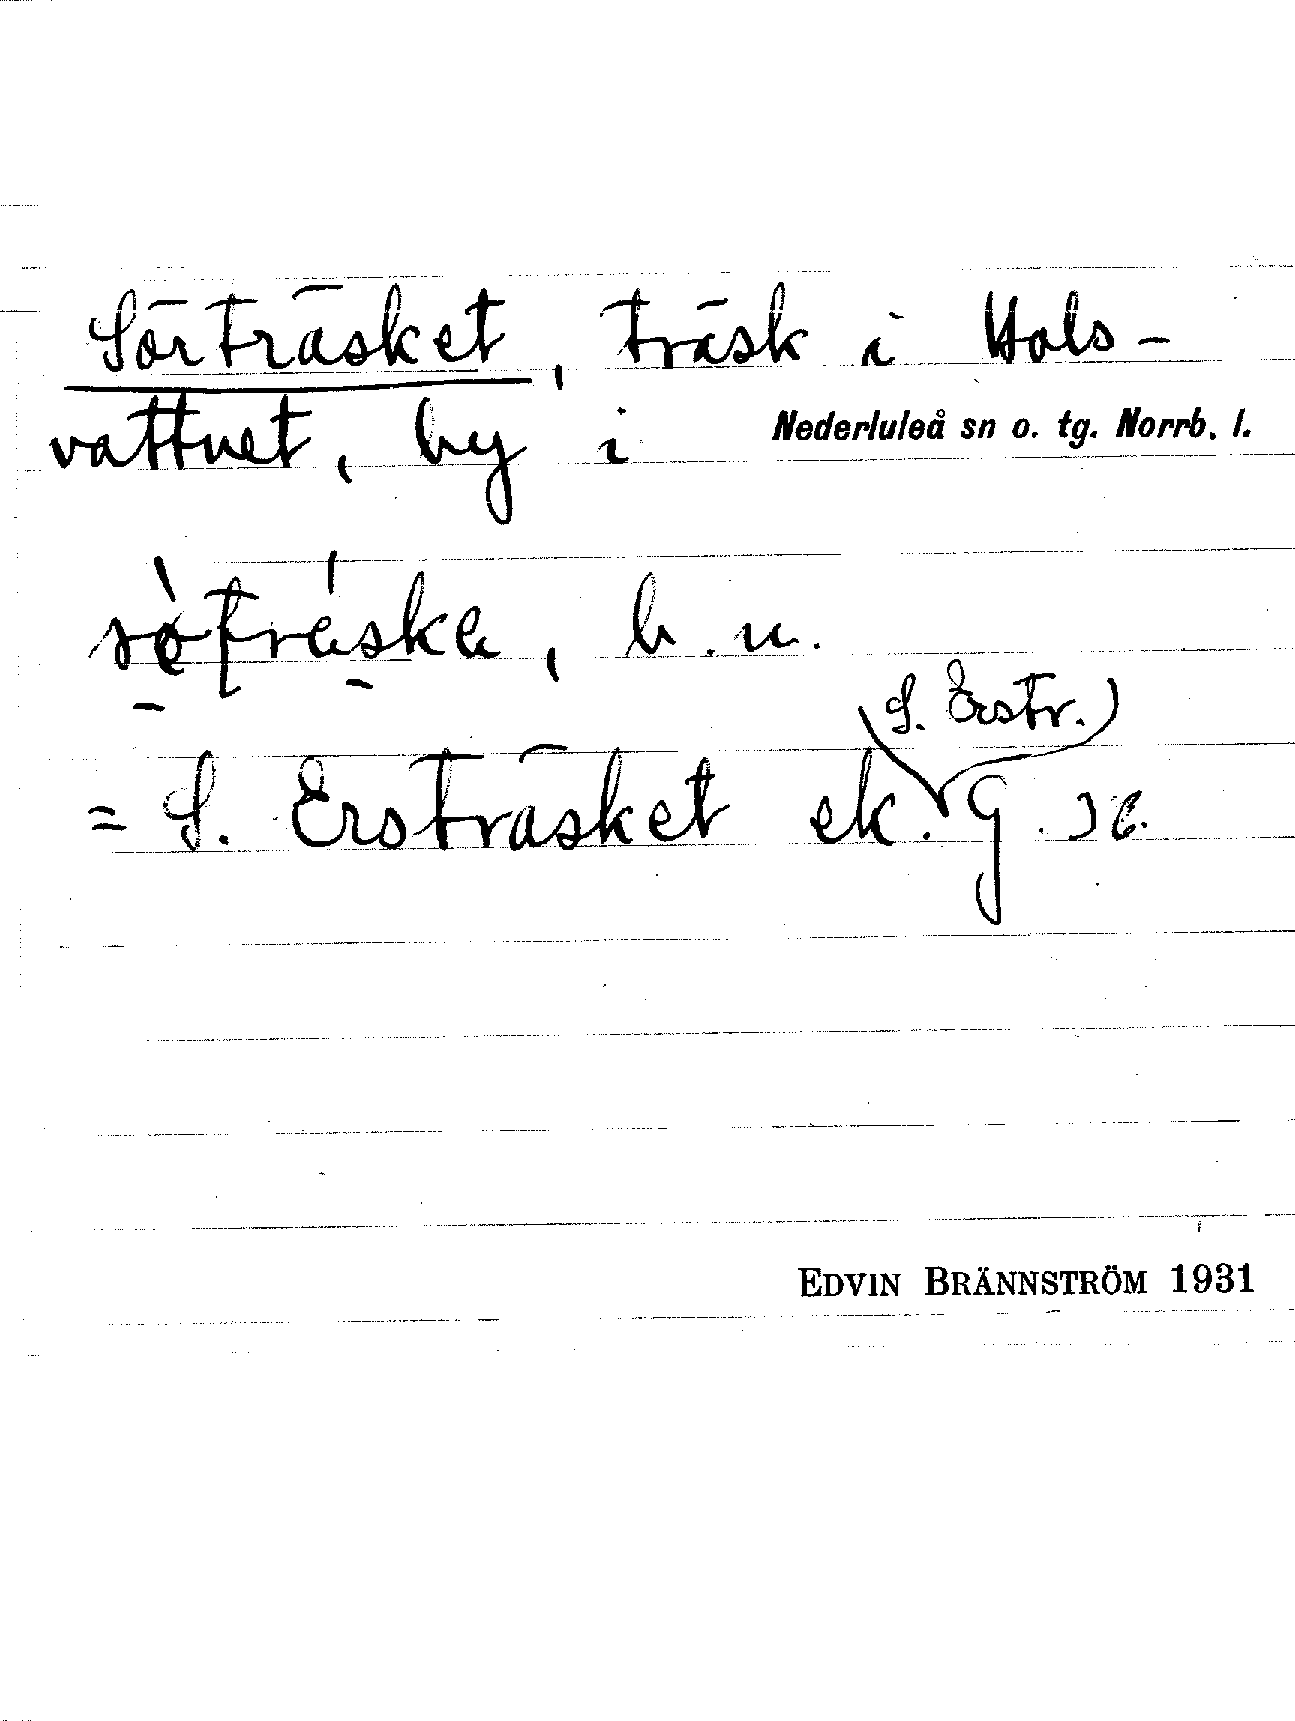 Sörträsket, träsk i Hols-
vattnet, by i Nederluleå sn o. tg. Norrb. l.
b. u.
(S. Erstr.)
= S. Ersträsket ek.
EDVIN BRÄNNSTRÖM 1931